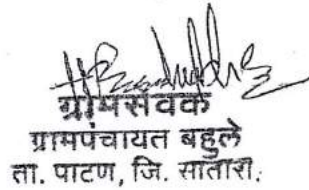 ग्रामसेवक
ग्रामपंचायत बहुले
ता. पाटण, जि. सातारा.